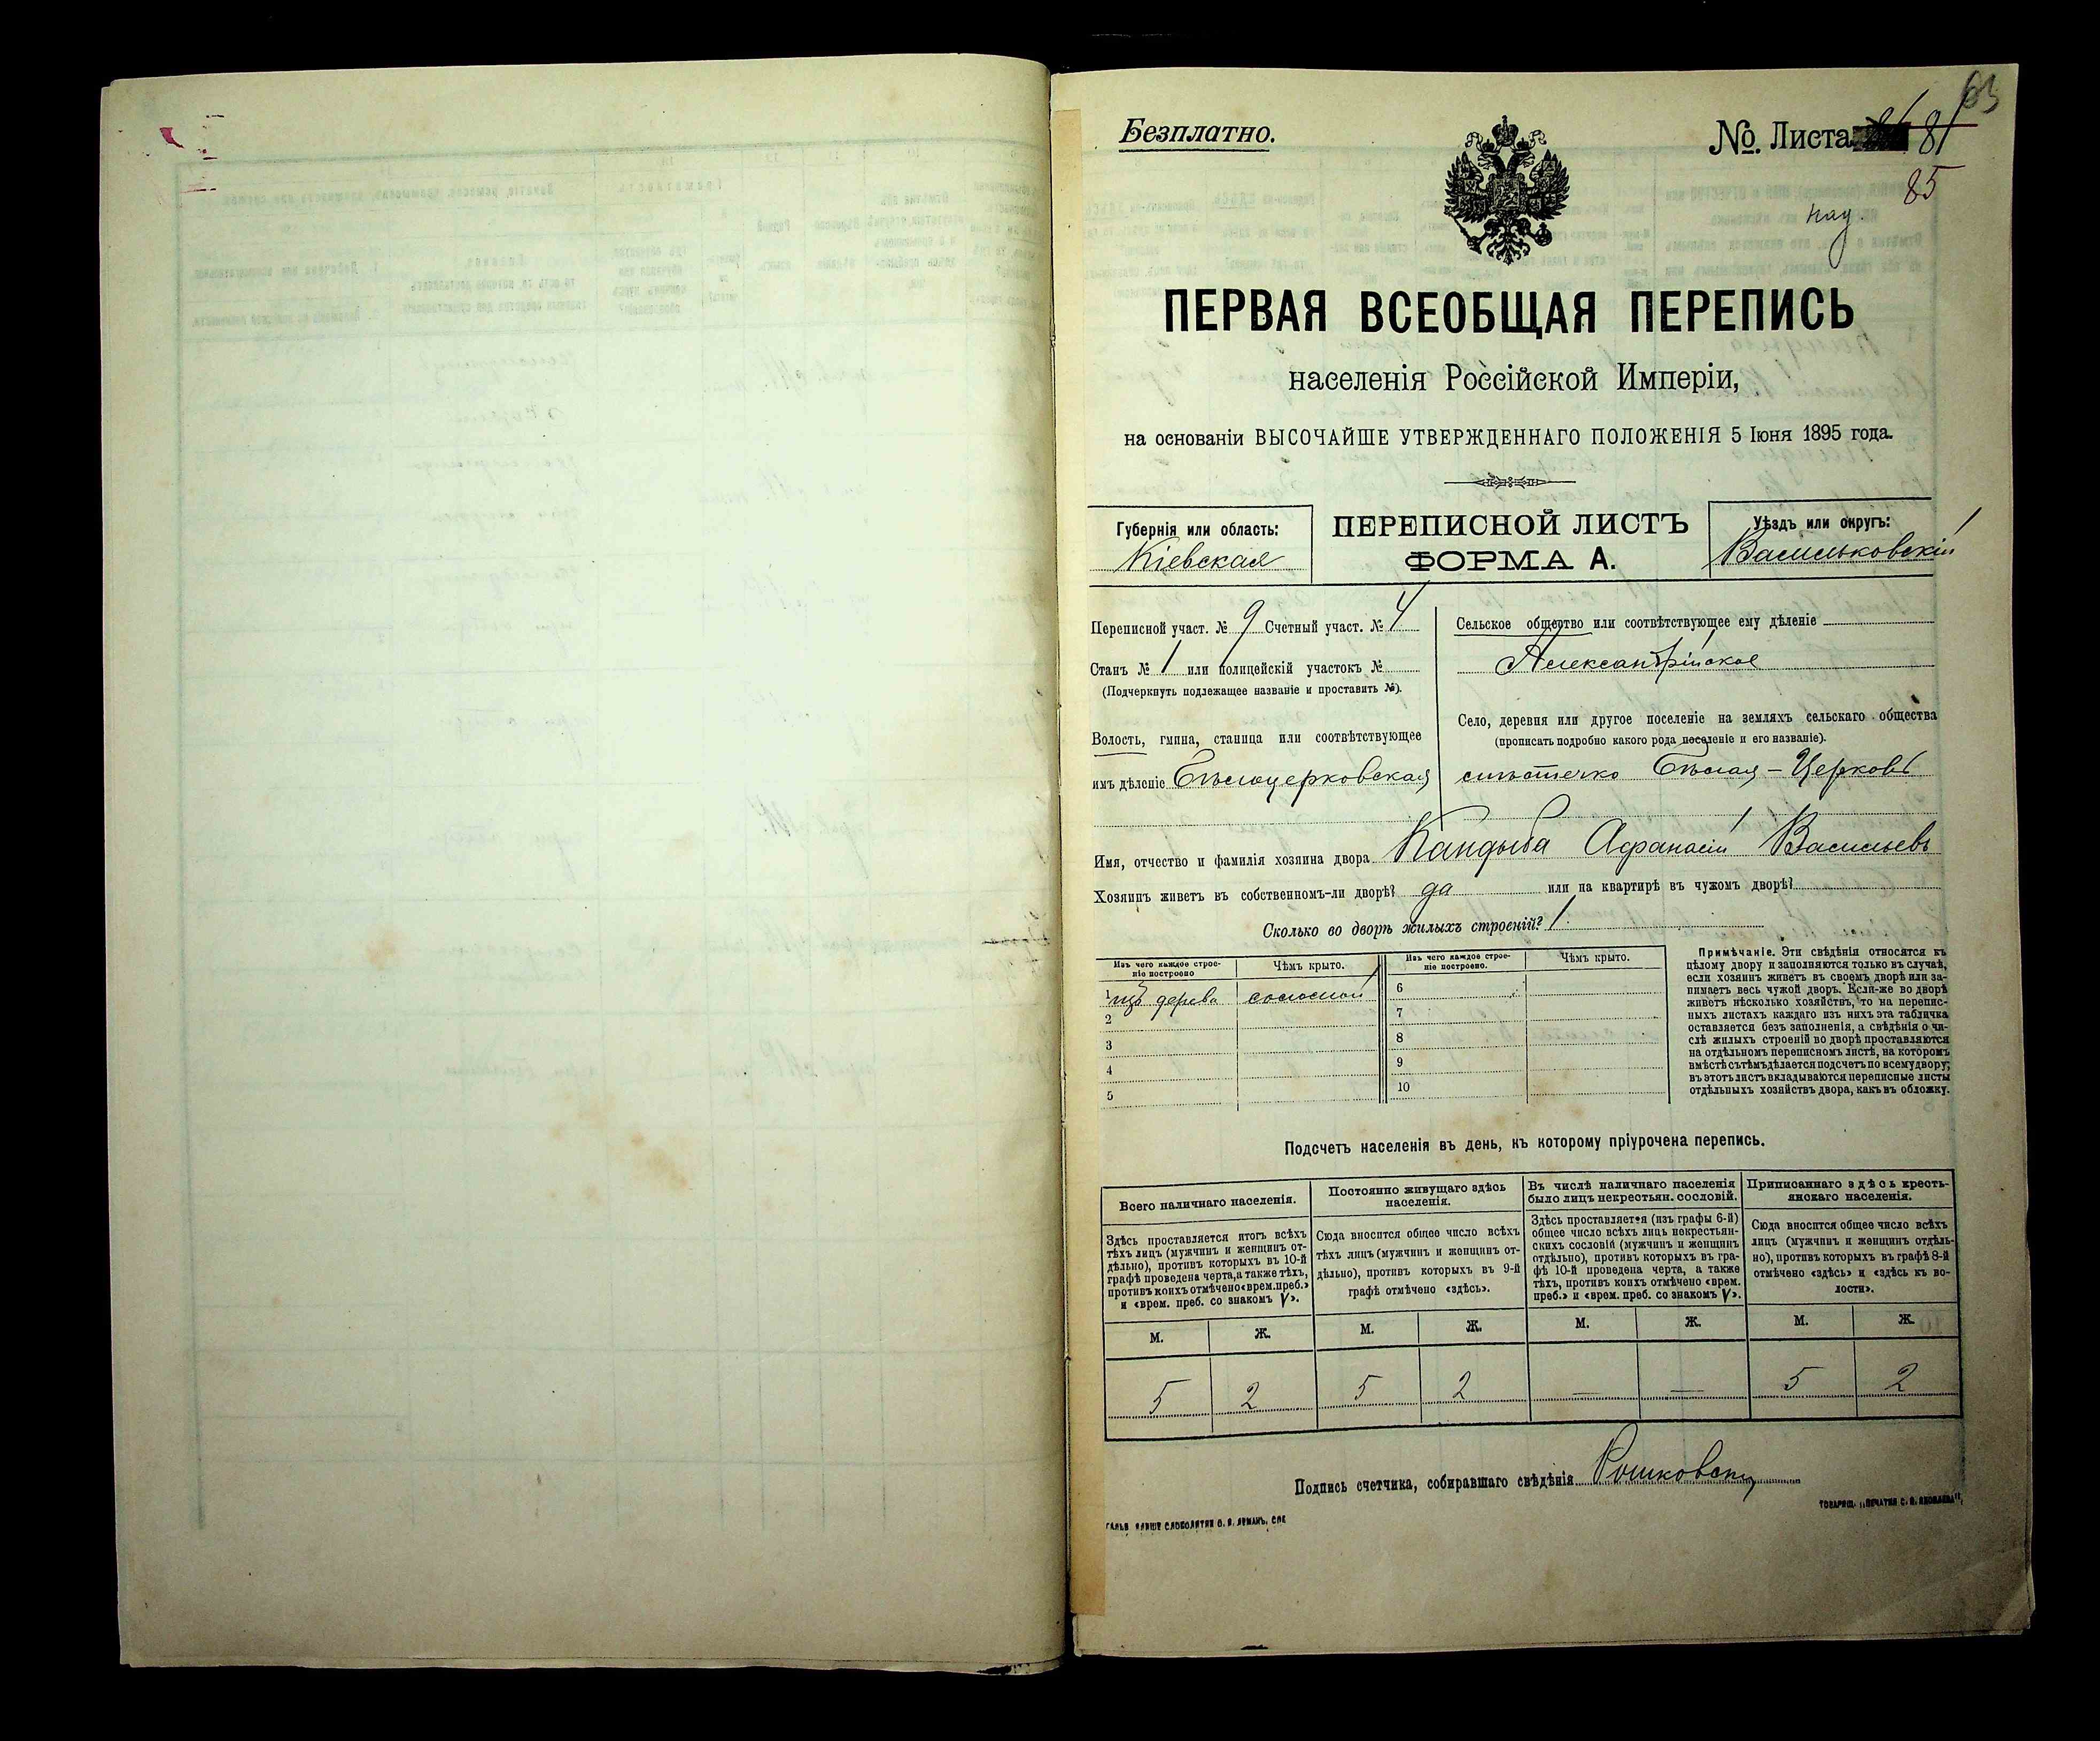 63
Безплатно.
№. Листа 81
85
ПЕРВАЯ ВСЕОБЩАЯ ПЕРЕПИСЬ
населенія Россійской Имперіи,
на основаніи ВЫСОЧАЙШЕ УТВЕРЖДЕННАГО ПОЛОЖЕНІЯ 5 Іюня 1895 года.
Губернія или область:
Кіевская
ПЕРЕПИСНОЙ ЛИСТЪ
ФОРМА А.
Уѣздъ или округъ:
Васильковскій
Переписной участ. № 9 Счетный участ. № 4
Станъ № 1 или полицейскій участокъ №
(Подчеркнуть подлежащее названіе и проставить №).
Волость, гмина, станица или соотвѣтствующее
имъ дѣленіе Бѣлоцерковская
Сельское общество или соотвѣтствующее ему дѣленіе
Александрійское
Село, деревня или другое поселеніе на земляхъ сельскаго общества
(прописать подробно какого рода поселеніе и его названіе).
мѣстечко Бѣлая-Церковь
Имя, отчество и фамилія хозяина двора Кандыба Афанасій Васильевъ
Хозяинъ живетъ въ собственномъ-ли дворѣ? да или на квартирѣ въ чужомъ дворѣ?
Сколько во дворѣ жилыхъ строеній? 1.
Изъ чего каждое строе-
ніе построено
Чѣмъ крыто.
Изъ чего каждое строе-
ніе построено.
Чѣмъ крыто.
1 изъ дерева соломой
2
3
4
5
6
7
8
9
10
Примѣчаніе. Эти свѣдѣнія относятся къ
цѣлому двору и заполняются только въ случаѣ,
если хозяинъ живетъ въ своемъ дворѣ или за-
нимаетъ весь чужой дворъ. Если-же во дворѣ
живетъ нѣсколько хозяйствъ, то на перепис-
ныхъ листахъ каждаго изъ нихъ эта табличка
оставляется безъ заполненія, а свѣдѣнія о чи-
слѣ жилыхъ строеній во дворѣ проставляются
на отдѣльномъ переписномъ листѣ, на которомъ
вмѣстѣ съ тѣмъ дѣлается подсчетъ по всему двору;
въ этотъ листъ вкладываются переписные листы
отдѣльныхъ хозяйствъ двора, какъ въ обложку.
Подсчетъ населенія въ день, къ которому пріурочена перепись.
Всего наличнаго населенія.
Здѣсь проставляется итогъ всѣхъ
тѣхъ лицъ (мужчинъ и женщинъ от-
дѣльно), противъ которыхъ въ 10-й
графѣ проведена черта, а также тѣхъ,
противъ коихъ отмѣчено «врем. преб.»
и «врем. преб. со знакомъ V».
Постоянно живущаго здѣсь
населенія.
Сюда вносится общее число всѣхъ
тѣхъ лицъ (мужчинъ и женщинъ от-
дѣльно), противъ которыхъ въ 9-й
графѣ отмѣчено «здѣсь».
Въ числѣ наличнаго населенія
было лицъ некрестьян. сословій.
Здѣсь проставляется (изъ графы 6-й)
общее число всѣхъ лицъ некрестьян-
скихъ сословій (мужчинъ и женщинъ
отдѣльно), противъ которыхъ въ гра-
фѣ 10-й проведена черта, а также
тѣхъ, противъ коихъ отмѣчено «врем.
преб.» и «врем. преб. со знакомъ V».
Приписаннаго здѣсь кресть-
янскаго населенія.
Сюда вносится общее число всѣхъ
лицъ (мужчинъ и женщинъ отдѣль-
но), противъ которыхъ въ графѣ 8-й
отмѣчено «здѣсь» и «здѣсь къ во-
лости».
М. Ж. М. Ж. М. Ж. М. Ж.
5 2 5 2 — — 5 2
Подпись счетчика, собиравшаго свѣдѣнія